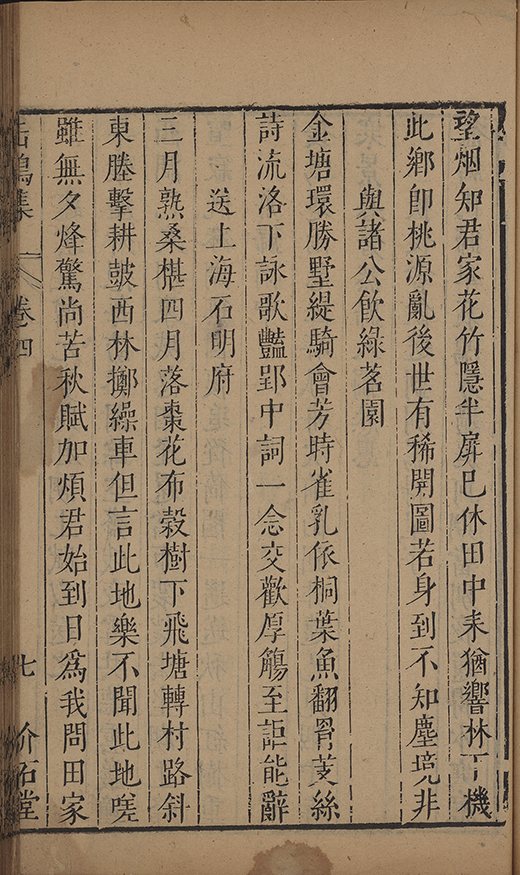 望烟知君家花竹隱半扉已休田中耒猶響林下機
此鄉卽桃源亂後世有稀開圖若身到不知塵境非
與諸公飲綠茗園
金塘環勝墅緹騎會芳時雀乳依桐葉魚翻罥芰絲
詩流洛下詠歌豔郢中詞一念交歡厚觴至詎能辭
送上海石明府
三月熟桑椹四月落棗花布穀樹下飛塘轉村路斜
東塍擊耕皷西林擲繰車但言此地樂不聞此地嗟
雖無夕烽驚尚苦秋賦加煩君始到日爲我問田家
缶鳴集
卷四
七
介石堂